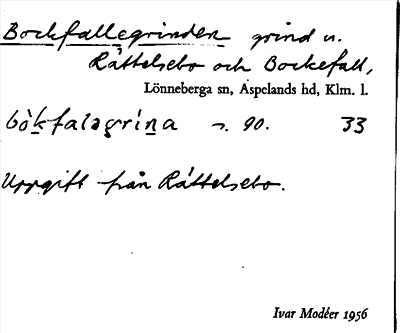 Bockfallegrinden grind n.
Råttelsebo och Bockefall,
Lönneberga sn, Aspelands hd, Klm. l.
bòkfalagrína 90. 33
Uppgift från Råttelsebo.
Ivar Modéer 1956